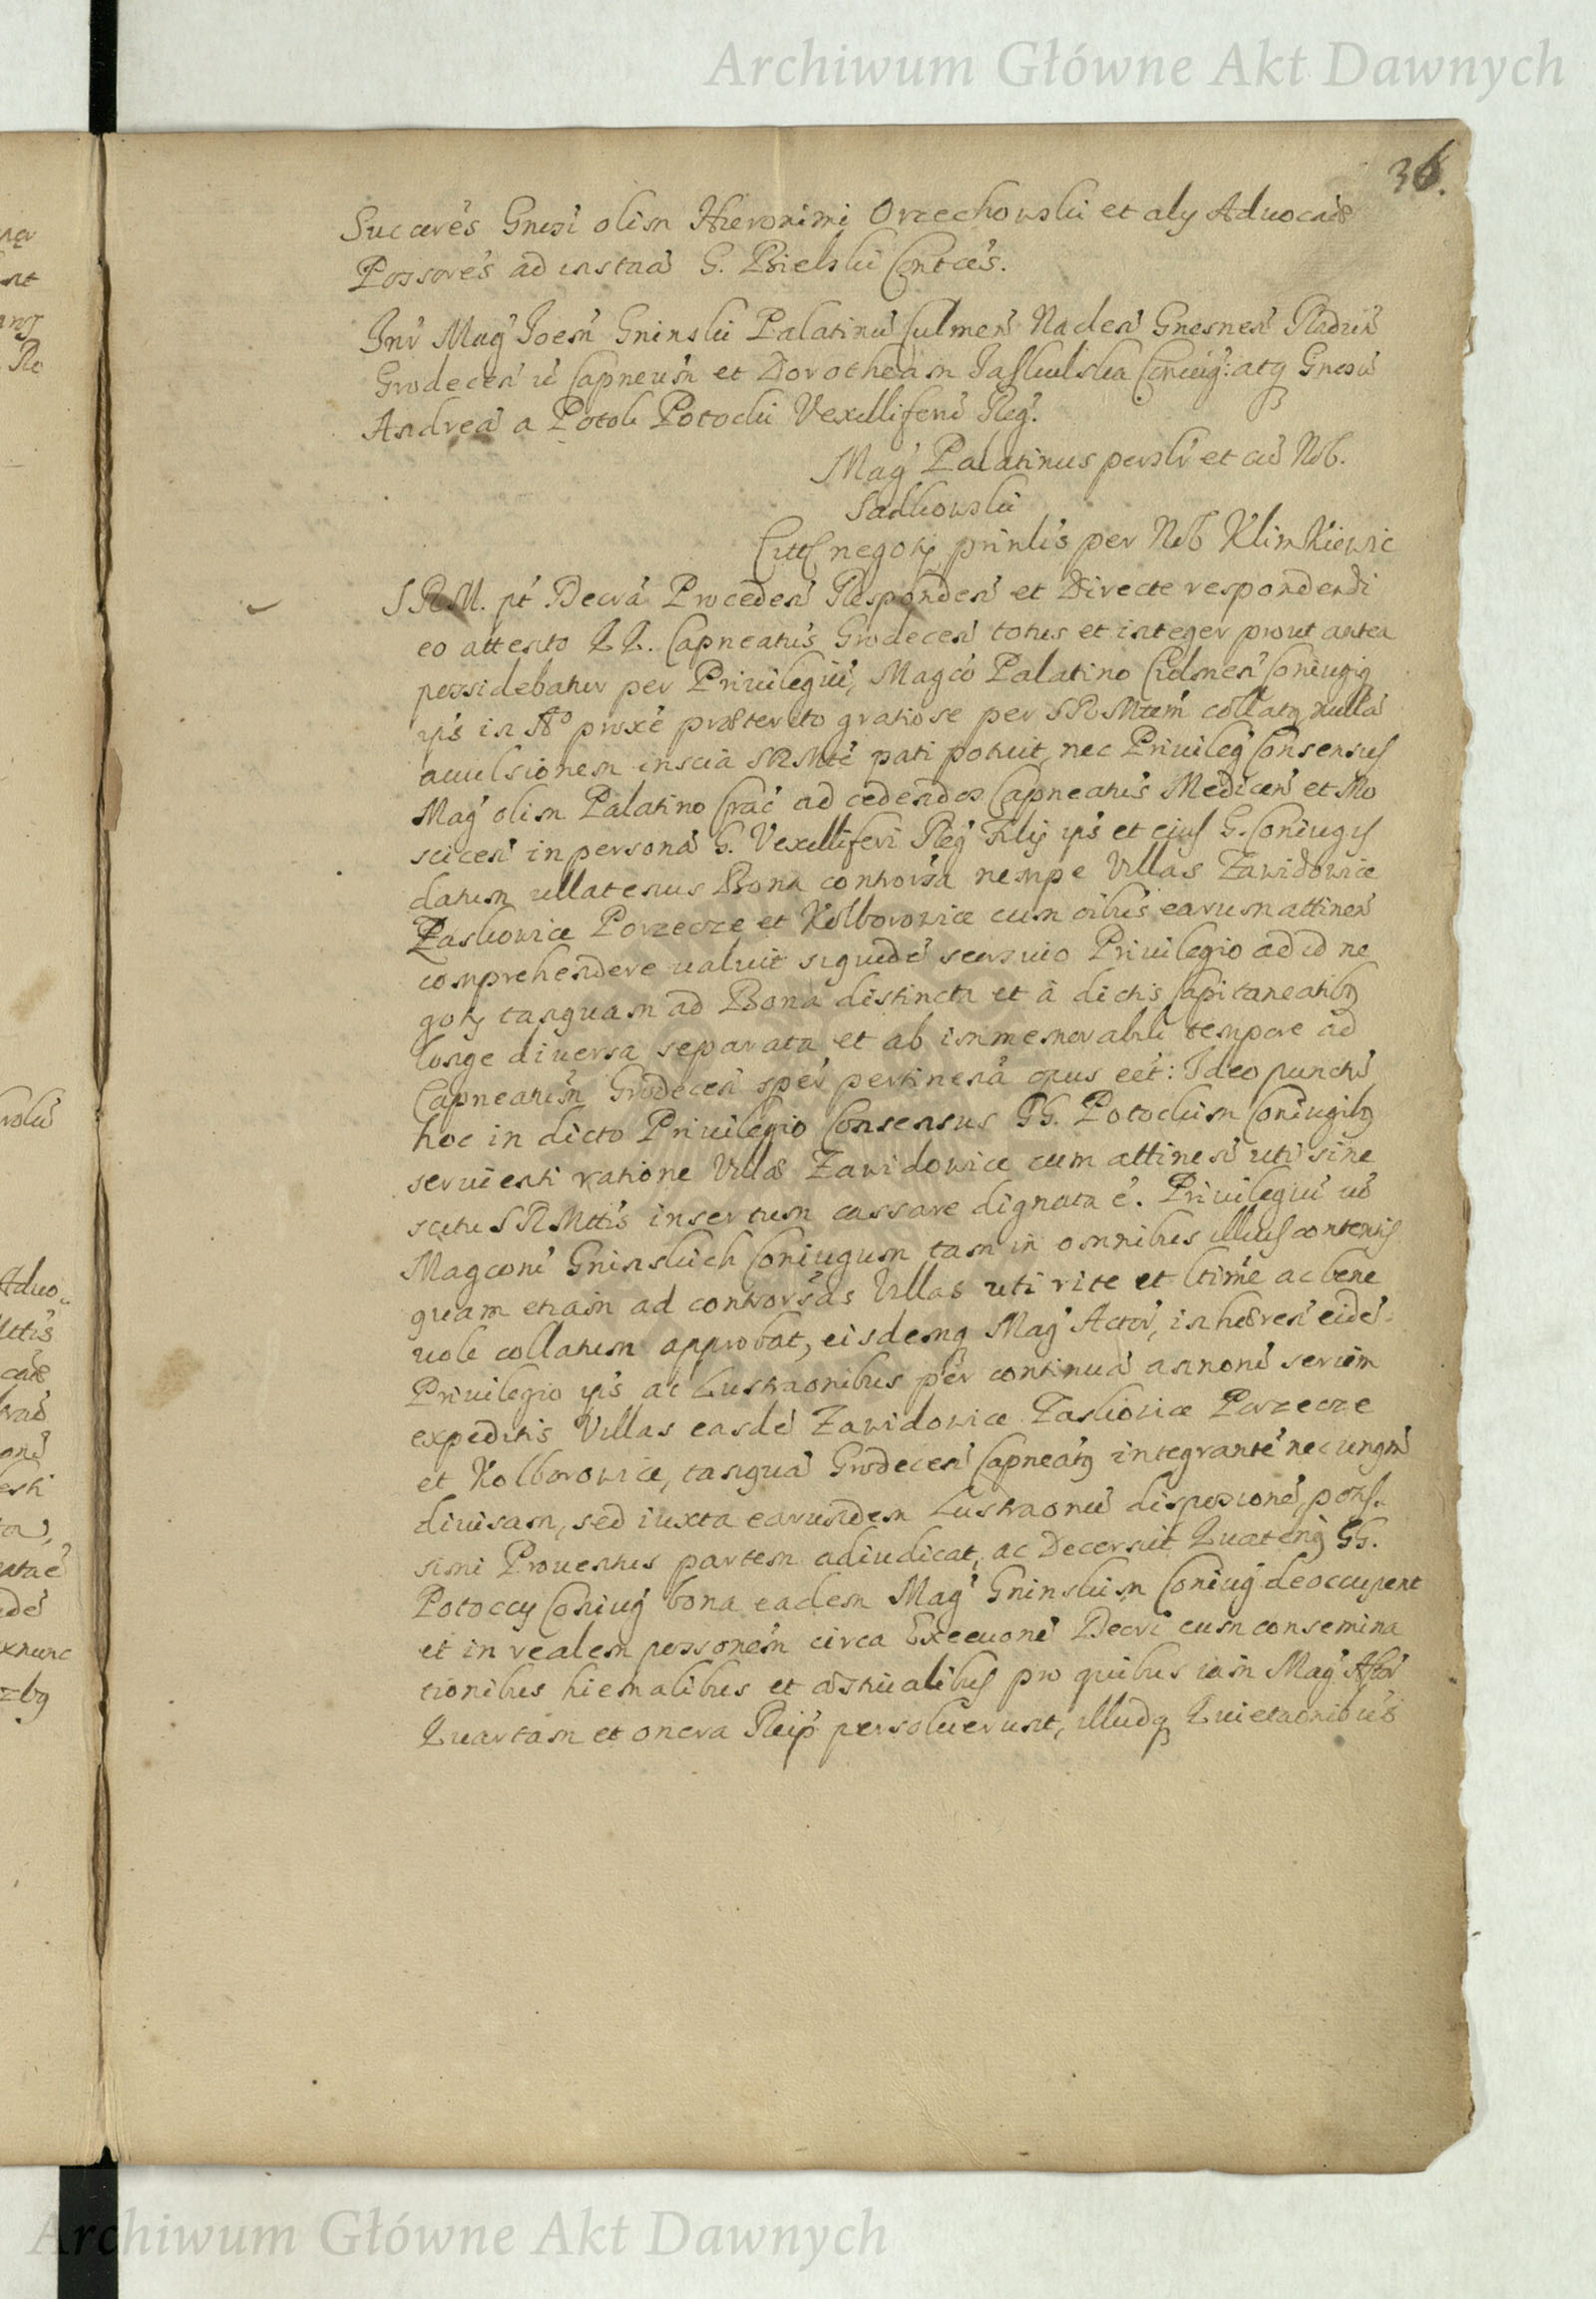 Archiwum Główne Akt Dawnych
36.
Succrēs Gnosi olim Hieronimi Orzechowski et aly Aduocats
Possores ad instaā G. Bielski Conteēs.
Inr̄ Mag Joem̄ Gninski Palatinū Culmen̄ Naclen̄ Gnesnen̄ Radziń
Grodecen̄ ū Capneum̄ et Dorotheam Jaskulska Coniug: atq Gnosū
Andreā a Potok Potocki Vexilliferū Reg.
Mag Palatinus persĺr et cū Nob.
Sadkowski
Citti negoty prinlis per Nob Klimkiewic
S R M. pt̄ Decrā Proceden̄ Responden̄ et Directe respondendi
eo attento QQ. Capneatus Grodecen̄ totus et integer prout antea
possidebatur per Privilegiū, Magco Palatino Culmen̄ Coniugiq
ips̄ in Ao proxē præterito gratiose per SRMtem̄ collatq nullā
auulsionem insciā SRMtē pati potuit, nec Priuileg Consensus
Mag olim Palatino Crac̄ ad cedendos Capneatus Medicen̄ et Mo
scicen̄ in personā G. Vexilliferi Reg Filij ips̄ et ejus G. Coniugis
datum ullatenus Bona controrsa nempe Villas Zawidowice
Zaskowice Porzecze et Kolborowice cum oibus̄ earum attinen̄
comprehendere ualuit siquidē seorsiuo Priuilegio ad id ne
goty tanquam ad Bona distincta et à dictis Capitaneatibq
longe diuersa separata et ab immemorabili tempore ad
Capneatum̄ Grodecen̄ sper pertinenā opus eēt: Ideo punctū
hoc in dicto Priuilegio Consensus GG. Potockim Coniugibq
seruienti ratione Villæ Zawidowice cum attinen̄ uti sine
scitu SRMttis insertum cassare dignata ē. Priuilegiū uō
Magconū Gninskich Coniugum tam in omnibus illius contentis
quam etiam ad controrsas Villas uti rite et ltime ac bene
uole collatum approbat, eisdemq Mag Actor, inhæren̄ eidē.
Priuilegio ips̄ ac Lustraonibus per continuā annonū seriem
expeditis Villas easdē Zawidowice Zaskowice Porzecze
et Kolborowice, tanquā Grodecen̄ Capneatq integrantē nec unqm̄
diuisam, sed iuxta earundem Lustraonū disposionē, potis.
simi Prouentus partem adiudicat, ac Decernit Quatenq GG.
Potoccy Coniug bona eadem Mag Gninskim Coniug deoccupent
et in realem possonem̄ circa Execuonē Decri cum consemina
tionibus hiemalibus et æstiualibus pro quibus iam Mag Actor
Quartam et onera Reip persoluerunt, illudq Quietaonibus
Archiwum Główne Akt Dawnych